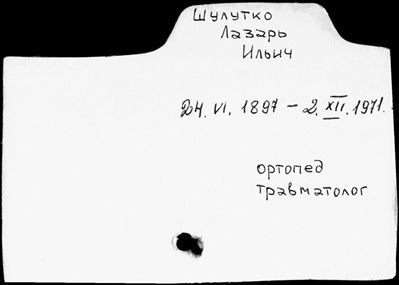 Шулутко
Лазарь
Ильич
24. VI. 1897 – 2. XII. 1971.
ортопед
травматолог